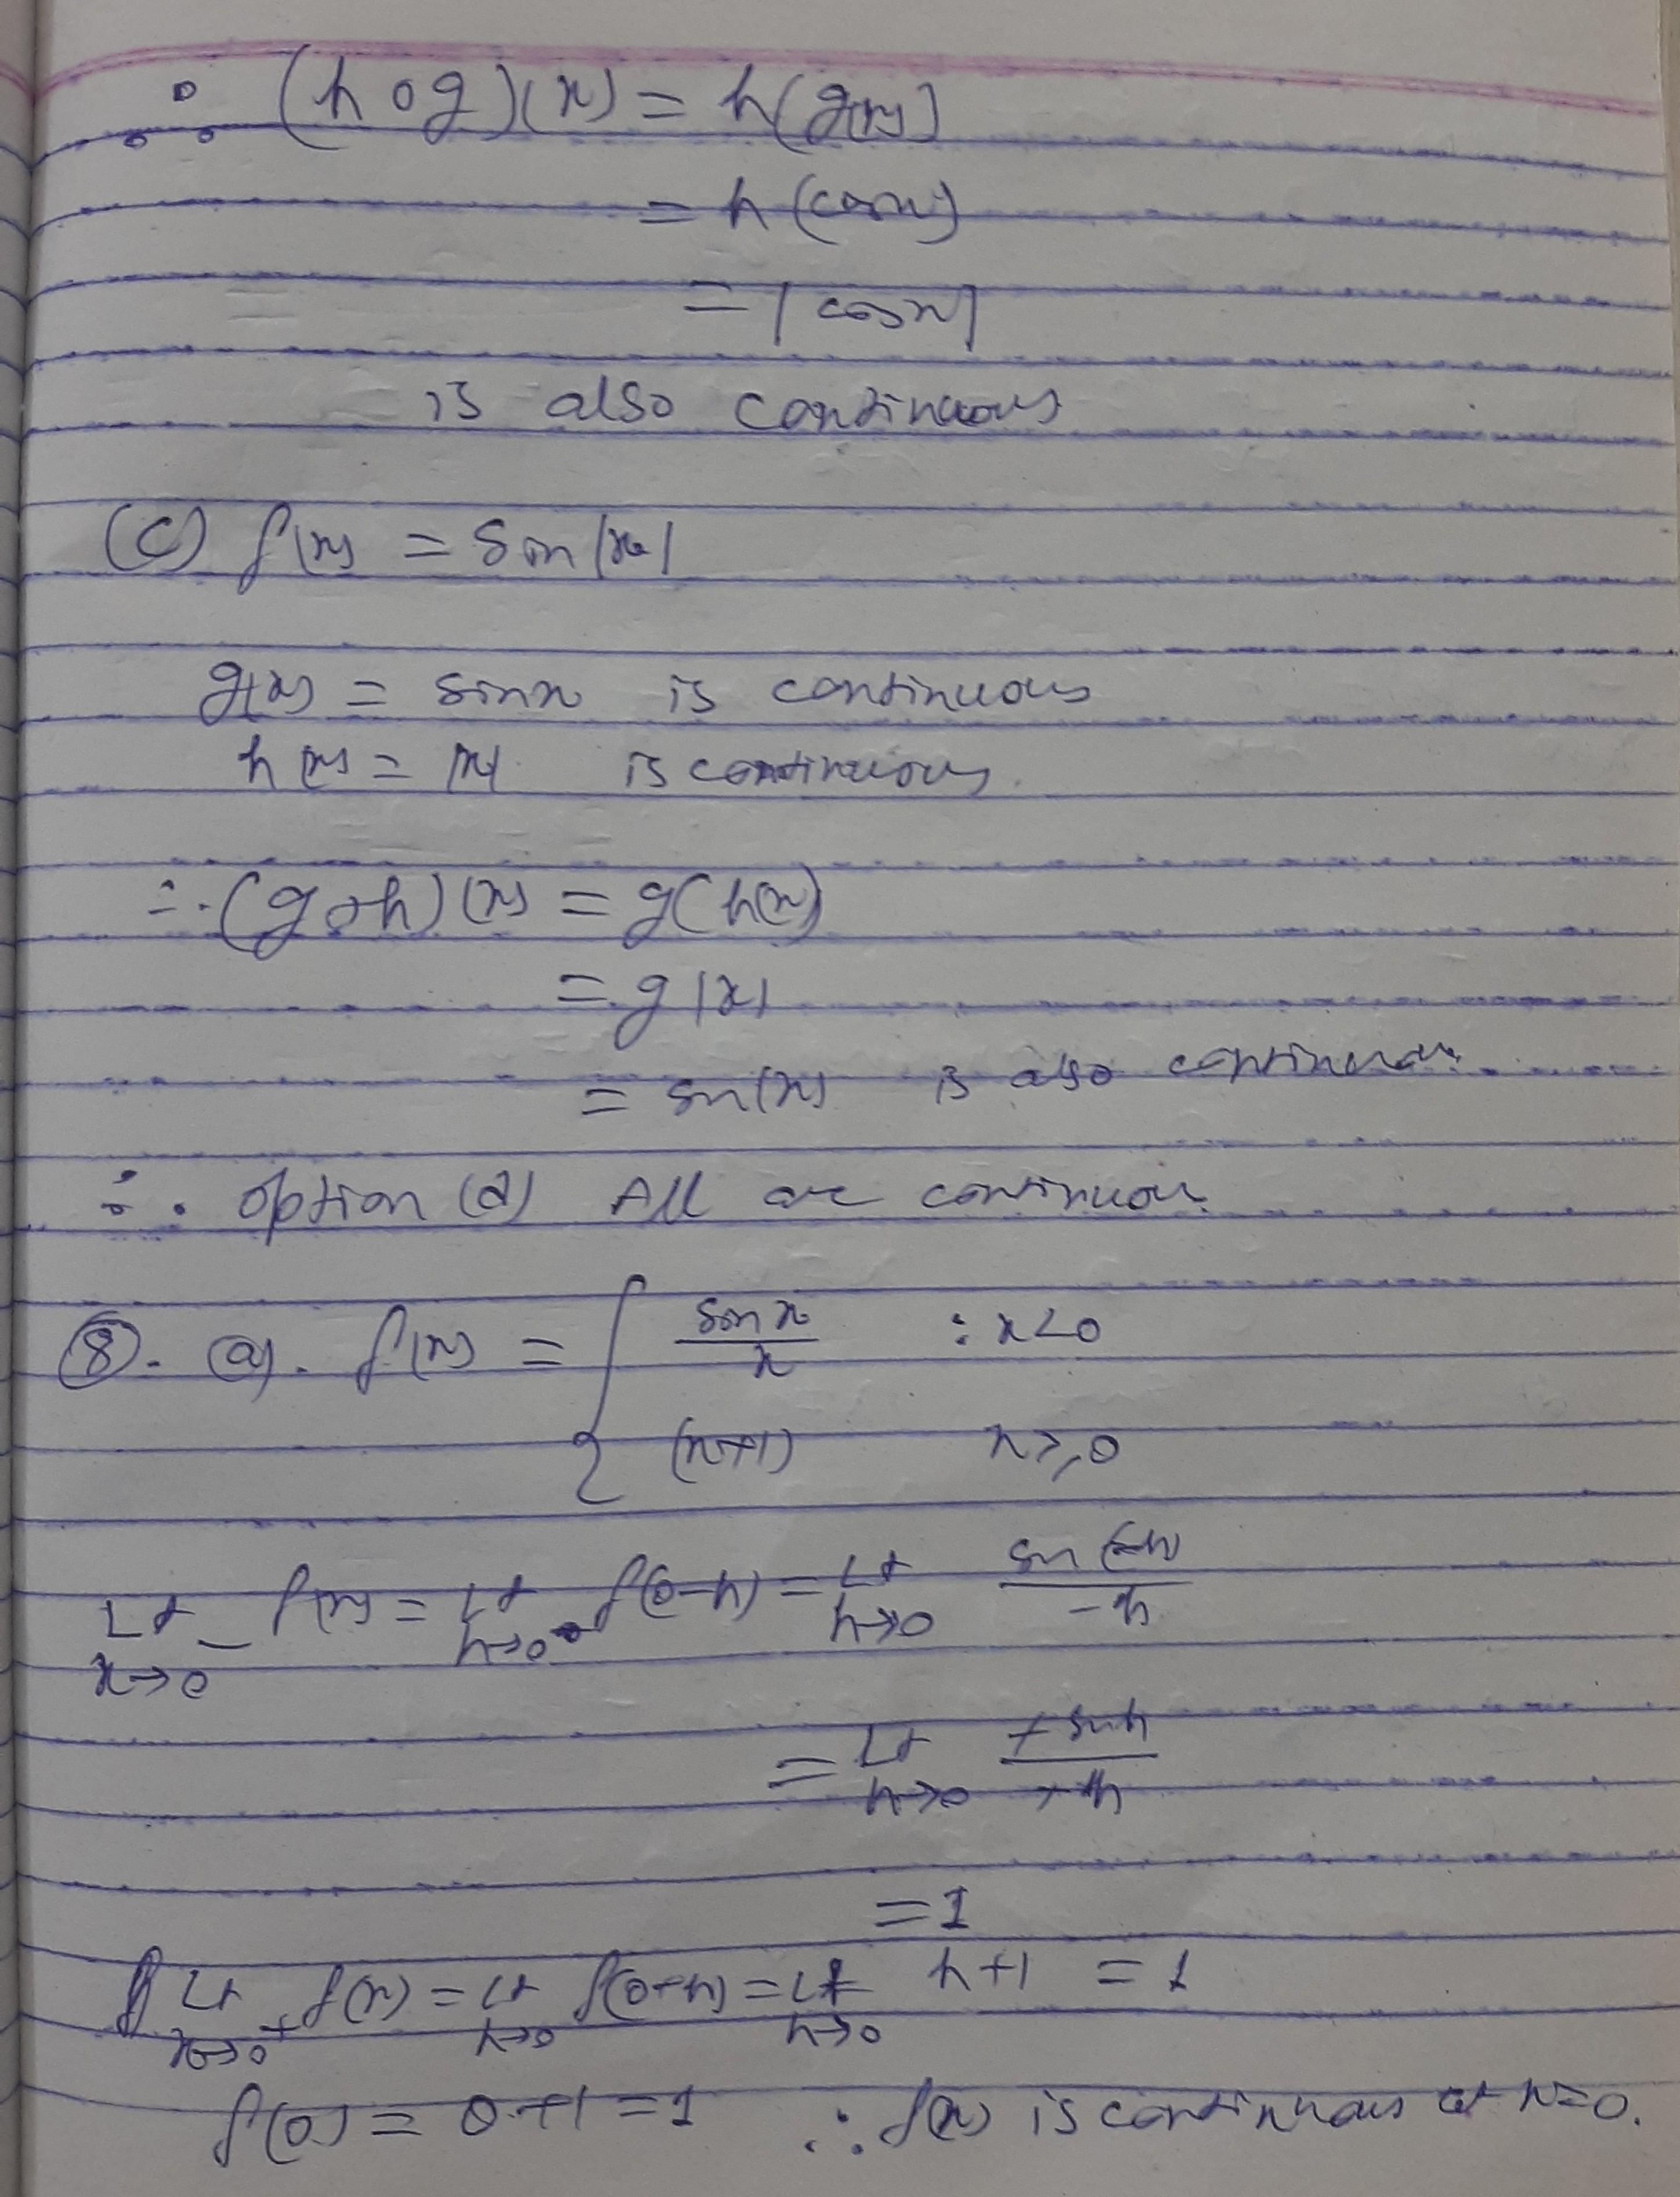 ∴ (hog)(x) = h(g(x))
= h(cosx)
= |cosx|
is also continuous
(c) f(x) = sin|x|
g(x) = sinx is continuous
h(x) = |x| is continuous.
∴ (goh)(x) = g(h(x))
= g|x|
= sin|x| is also continuous.
∴ option (d) All are continuous.
⑧. (a). f(x) = { sinx/x : x<0
(x+1) x≥0
Lt x→0⁻ f(x) = Lt h→0 f(0-h) = Lt h→0 sin(-h)/-h
= Lt h→0 +sinh/+h
= 1
Lt x→0⁺ f(x) = Lt h→0 f(0+h) = Lt h→0 h+1 = 1
f(0) = 0+1 = 1 ∴ f(x) is continuous at x=0.